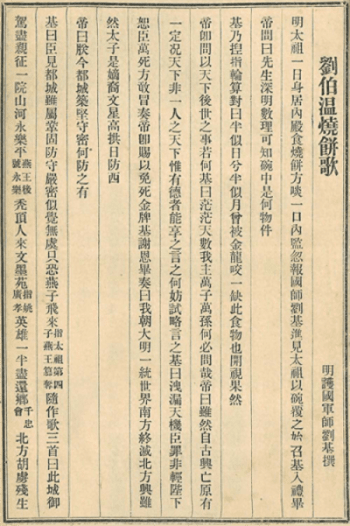 劉伯温燒餅歌
明護國軍師劉基撰
明太祖一日身居內殿食燒餅方啖一口內監忽報國師劉基進見太祖以碗覆之始召基入禮畢
帝問曰先生深明數理可知碗中是何物件
基乃揑指輪算對曰半似日兮半似月曾被金龍咬一缺此食物也開視果然
帝卽問以天下後世之事若何基曰茫茫天數我主萬子萬孫何必問哉帝曰雖然自古興亡原有
一定况天下非一人之天下惟有德者能享之言之何妨試略言之基曰洩漏天機臣罪非輕陛下
恕臣萬死方敢冒奏帝卽賜以免死金牌基謝恩畢奏曰我朝大明一統世界南方終滅北方興雖
然太子是嫡裔文星高拱日防西
帝曰朕今都城築堅守密何防之有
基曰臣見都城雖屬鞏固防守嚴密似覺無虞只恐燕子飛來指太祖第四子燕王篡奪隨作歌三首曰此城御
駕盡親征一院山河永樂平燕王後號永樂禿頂人來文墨苑指姚廣孝英雄一半盡還鄉千忠會北方胡虜殘生